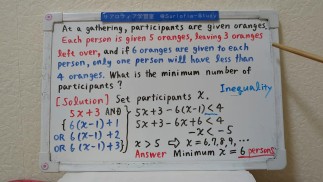 At a gathering, participants are given oranges.
Each person is given 5 oranges, leaving 3 oranges
left over, and if 6 oranges are given to each
person, only one person will have less than
4 oranges. What is the minimum number of
participants?
Inequality
[Solution] Set participants x.
5x+3 AND
{ 6(x-1)+1
OR 6(x-1)+2
OR 6(x-1)+3 }
5x+3-6(x-1)<4
5x+3-6x+6<4
-x<-5
x>5 ⇒ x=6,7,8,9,...
Answer Minimum x=6 persons